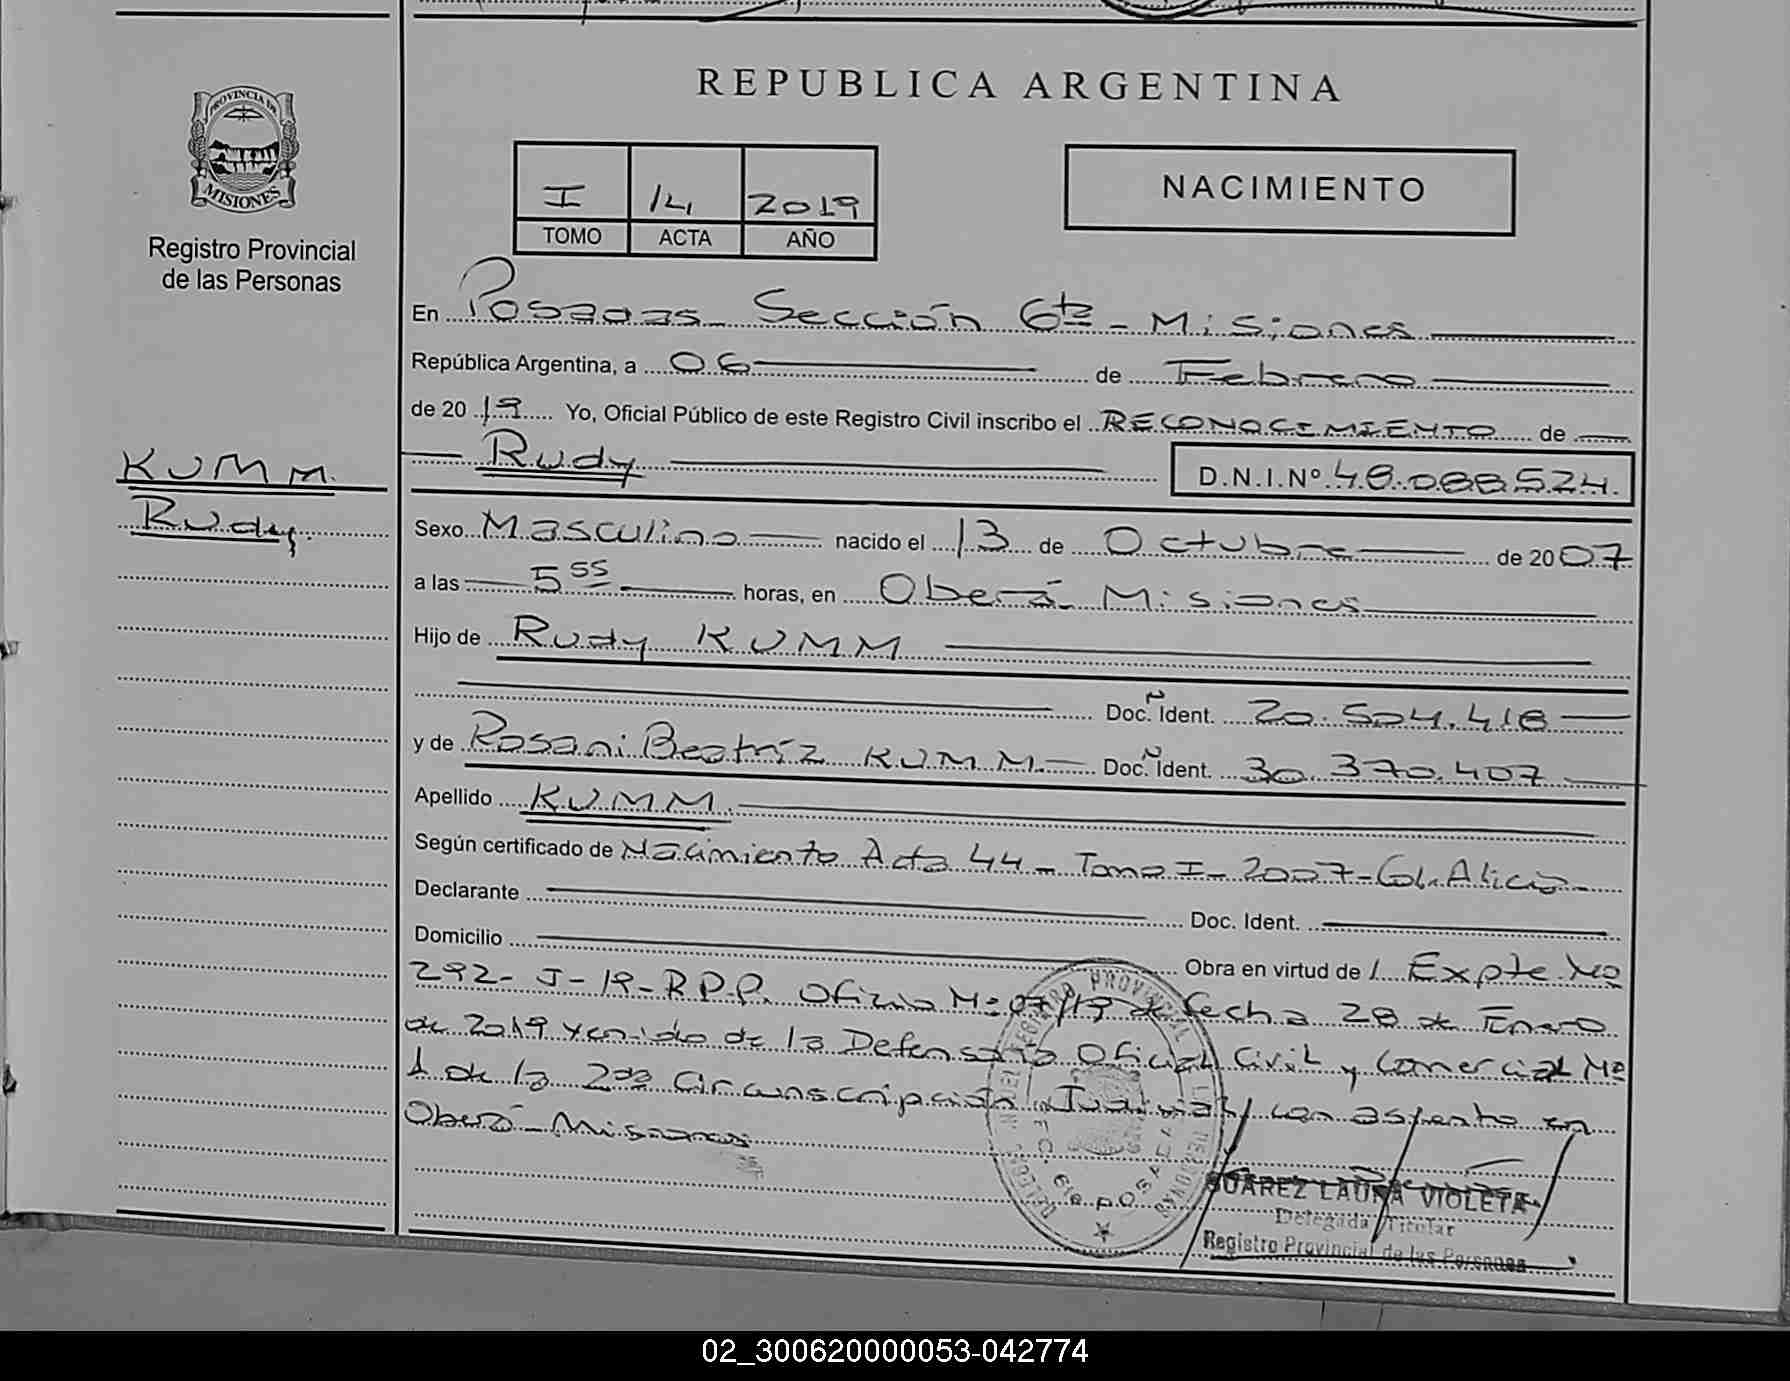 REPUBLICA ARGENTINA
PROVINCIA DE
MISIONES
Registro Provincial
de las Personas
I 14 2019
TOMO ACTA AÑO
NACIMIENTO
En Posadas - Sección 6ta - Misiones
República Argentina, a 06 de Febrero
de 2019 Yo, Oficial Público de este Registro Civil inscribo el RECONOCIMIENTO de
KUMM.
Rudy
Rudy D.N.I.Nº 48.088.524.
Sexo Masculino nacido el 13 de Octubre de 2007
a las 5 55 horas, en Oberá - Misiones
Hijo de Rudy KUMM
Doc. Ident. 20.504.418
y de Rosani Beatríz KUMM Doc. Ident. 30.370.407
Apellido KUMM.
Según certificado de Nacimiento Acta 44 - Tomo I - 2007 - Col. Alicia -
Declarante Doc. Ident.
Domicilio
Obra en virtud de / Expte. Nº
292 - J - 19 - R.P.P. Oficio Nº 07/19 de fecha 28 de Enero
de 2019 venido de la Defensoría Oficial Civil y Comercial Nº
1 de la 2da Circunscripción Judicial, con asiento en
Oberá - Misiones
SUAREZ LAURA VIOLETA
Delegada Titular
Registro Provincial de las Personas
02_300620000053-042774